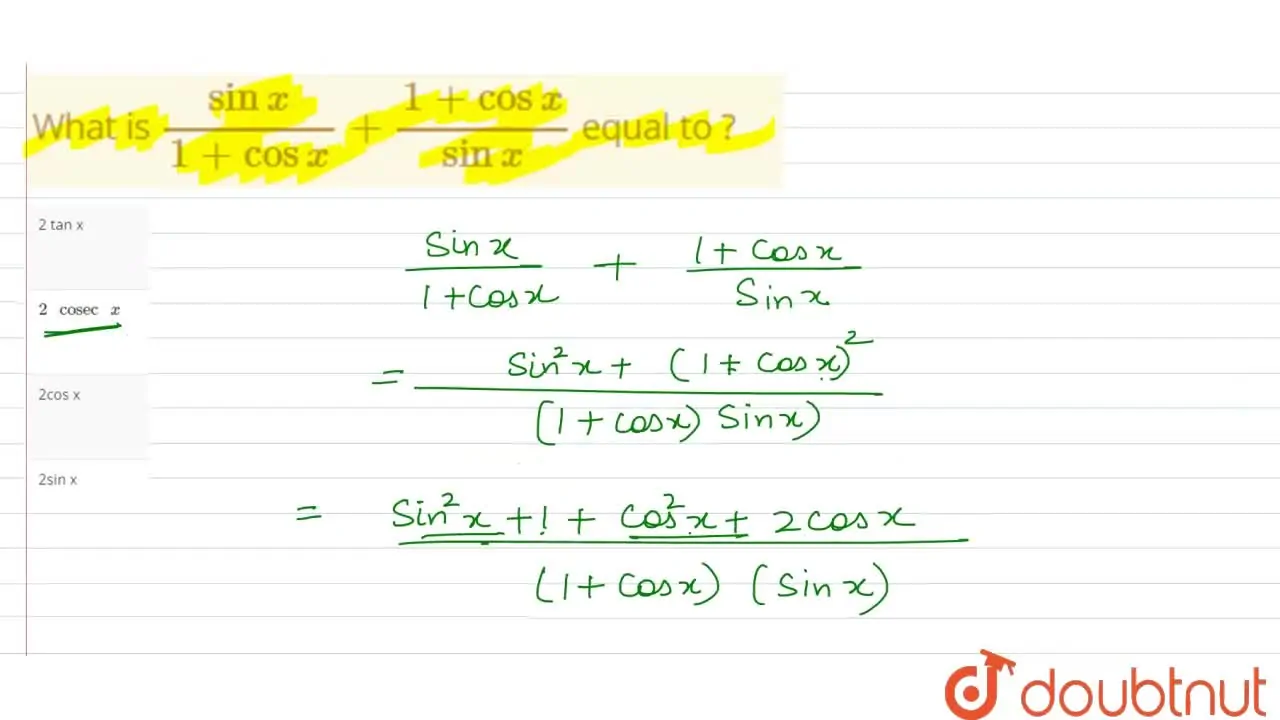 What is \frac{\sin x}{1 + \cos x} + \frac{1 + \cos x}{\sin x} equal to ?
2 tan x
2 cosec x
2cos x
2sin x
\frac{Sin x}{1 + Cos x} + \frac{1 + Cos x}{Sin x}
= \frac{Sin^2 x + (1 + Cos x)^2}{(1 + Cos x) Sin x)}
= \frac{Sin^2 x + 1 + Cos^2 x + 2 Cos x}{(1 + Cos x) (Sin x)}
doubtnut